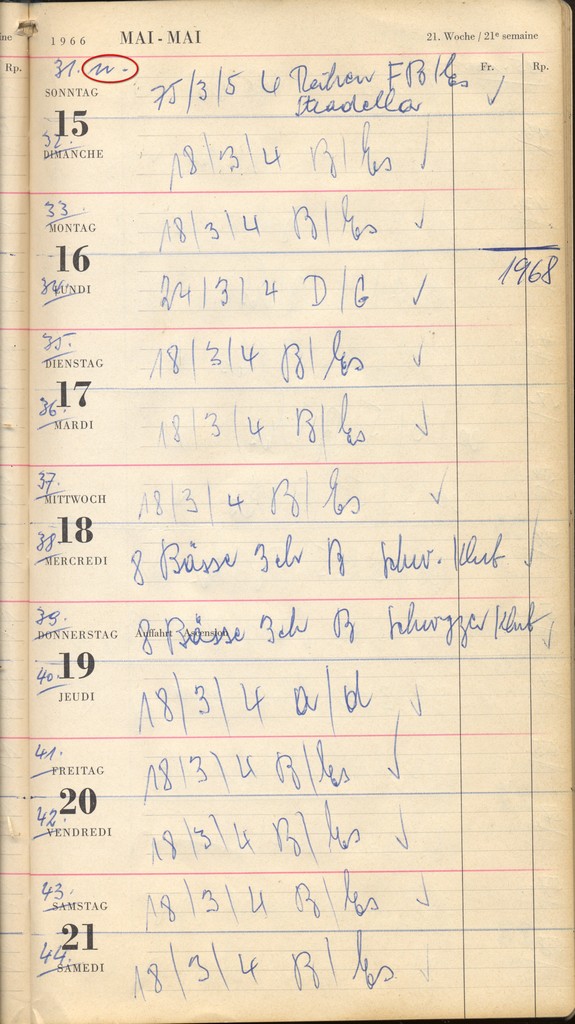 1966 MAI - MAI 21. Woche / 21e semaine
Rp. Fr. Rp.
31. n.
SONNTAG 75/3/5 4 Reihen F B/Es
Stradella
15
32.
DIMANCHE 18/3/4 B/Es
33.
MONTAG 18/3/4 B/Es
16
1968
34.
LUNDI 24/3/4 D/G
35.
DIENSTAG 18/3/4 B/Es
17
36.
MARDI 18/3/4 B/Es
37.
MITTWOCH 18/3/4 B/Es
18
38.
MERCREDI 8 Bässe 3ch B Schw. Klub
39.
DONNERSTAG Auffahrt Ascension 8 Bässe 3ch B Schwyzer/Klub
19
40.
JEUDI 18/3/4 a/d
41.
FREITAG 18/3/4 B/Es
20
42.
VENDREDI 18/3/4 B/Es
43.
SAMSTAG 18/3/4 B/Es
21
44.
SAMEDI 18/3/4 B/Es